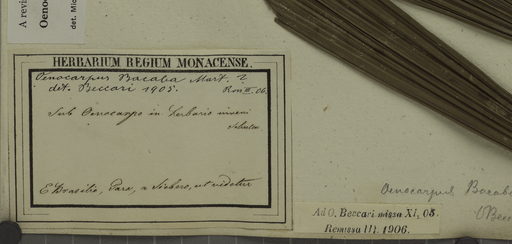 A revis
Oenoc
det. Mic
HERBARIUM REGIUM MONACENSE.
Oenocarpus Bacaba Mart. ?
det. Beccari 1905. Rm III. 06.
Sub Oenocarpo in herbario inveni
E Brasilia, Para, a Siebero, ut videtur
Oenocarpus Bacaba
Ad O. Beccari missa XI, 05.
Remissa III. 1906.